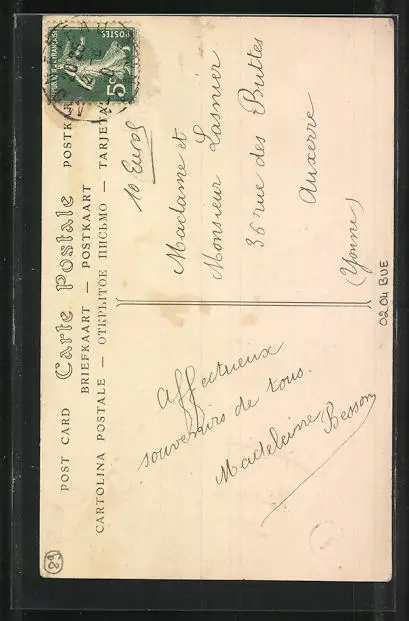 POST CARD Carte Postale POSTKARTE
BRIEFKAART — POSTKAART
CARTOLINA POSTALE — ОТКРЫТОЕ ПИСЬМО — TARJETA
POSTES
5c
Affectueux
souvenirs de tous.
Madeleine Besson
10 Euros
Madame et
Monsieur Lasnier
36 rue des Buttes
Auxerre
(Yonne)
02 04 BUE
89